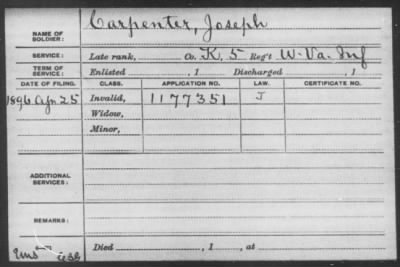 NAME OF SOLDIER: Carpenter, Joseph
SERVICE: Late rank, Co. K, 5 Reg't W. Va. Inf
TERM OF SERVICE: Enlisted , 1 Discharged , 1
DATE OF FILING. CLASS. APPLICATION NO. LAW. CERTIFICATE NO.
1896 Apr 25 Invalid, 1177351 J
Widow,
Minor,
ADDITIONAL SERVICES:
REMARKS:
Died , 1 , at